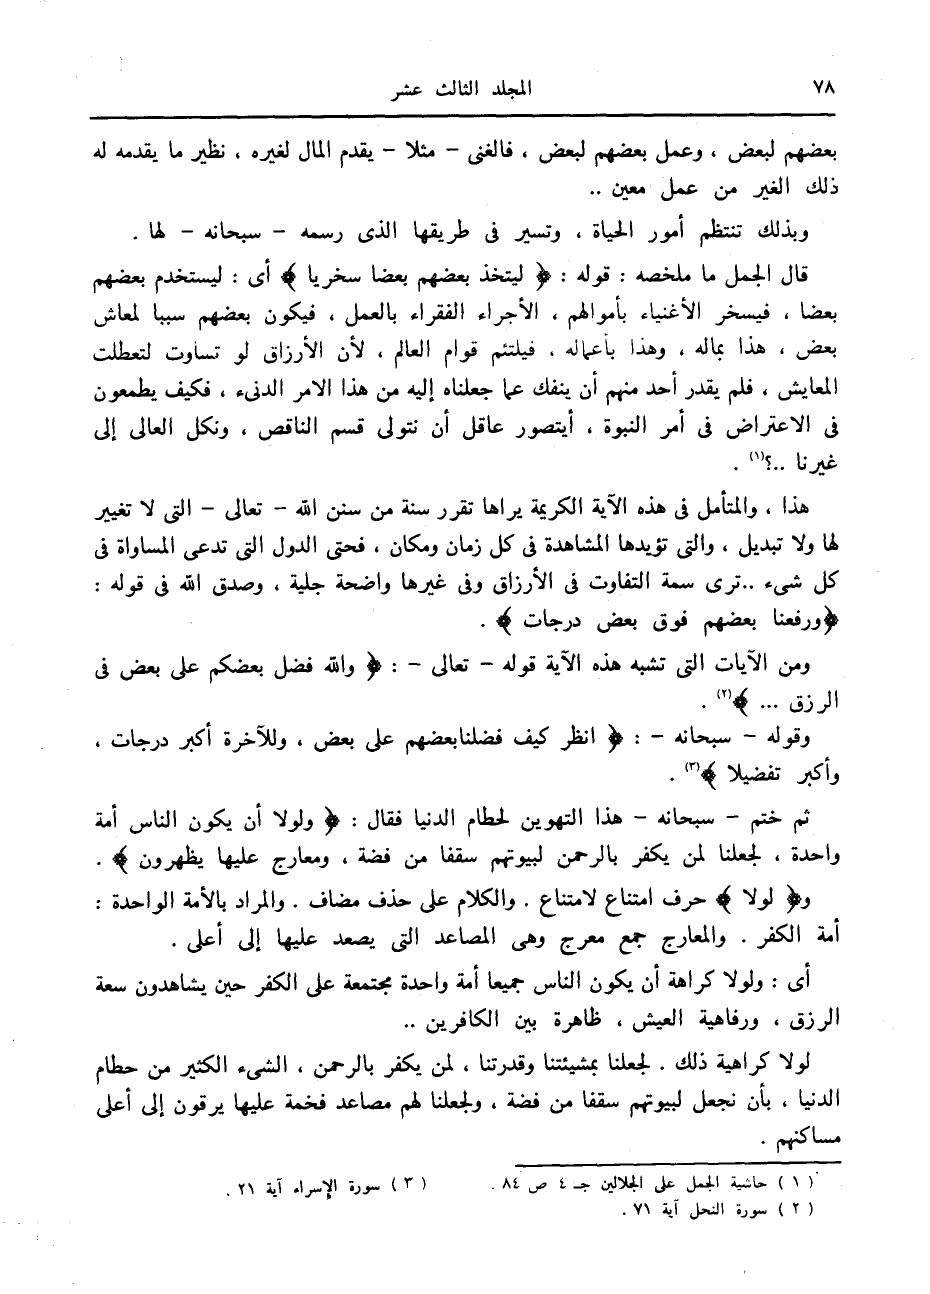 ٧٨
المجلد الثالث عشر
بعضهم لبعض ، وعمل بعضهم لبعض ، فالغنى – مثلا – يقدم المال لغيره ، نظير ما يقدمه له
ذلك الغير من عمل معين ..
وبذلك تنتظم أمور الحياة ، وتسير فى طريقها الذى رسمه – سبحانه – لها .
قال الجمل ما ملخصه : قوله : ﴿ ليتخذ بعضهم بعضا سخريا ﴾ أى : ليستخدم بعضهم
بعضا ، فيسخر الأغنياء بأموالهم ، الأجراء الفقراء بالعمل ، فيكون بعضهم سببا لمعاش
بعض ، هذا بماله ، وهذا بأعماله ، فيلتئم قوام العالم ، لأن الأرزاق لو تساوت لتعطلت
المعايش ، فلم يقدر أحد منهم أن ينفك عما جعلناه إليه من هذا الامر الدنىء ، فكيف يطمعون
فى الاعتراض فى أمر النبوة ، أيتصور عاقل أن نتولى قسم الناقص ، ونكل العالى إلى
غيرنا ..؟(١) .
هذا ، والمتأمل فى هذه الآية الكريمة يراها تقرر سنة من سنن الله – تعالى – التى لا تغيير
لها ولا تبديل ، والتى تؤيدها المشاهدة فى كل زمان ومكان ، فحتى الدول التى تدعى المساواة فى
كل شىء ..ترى سمة التفاوت فى الأرزاق وفى غيرها واضحة جلية ، وصدق الله فى قوله :
﴿ورفعنا بعضهم فوق بعض درجات ﴾ .
ومن الآيات التى تشبه هذه الآية قوله – تعالى – : ﴿ والله فضل بعضكم على بعض فى
الرزق ... ﴾(٢) .
وقوله – سبحانه – : ﴿ انظر كيف فضلنابعضهم على بعض ، وللآخرة أكبر درجات ،
وأكبر تفضيلا ﴾(٣) .
ثم ختم – سبحانه – هذا التهوين لحطام الدنيا فقال : ﴿ ولولا أن يكون الناس أمة
واحدة ، لجعلنا لمن يكفر بالرحمن لبيوتهم سقفا من فضة ، ومعارج عليها يظهرون ﴾ .
و﴿ لولا ﴾ حرف امتناع لامتناع . والكلام على حذف مضاف . والمراد بالأمة الواحدة :
أمة الكفر . والمعارج جمع معرج وهى المصاعد التى يصعد عليها إلى أعلى .
أى : ولولا كراهة أن يكون الناس جميعا أمة واحدة مجتمعة على الكفر حين يشاهدون سعة
الرزق ، ورفاهية العيش ، ظاهرة بين الكافرين ..
لولا كراهية ذلك . لجعلنا بمشيئتنا وقدرتنا ، لمن يكفر بالرحمن ، الشىء الكثير من حطام
الدنيا ، بأن نجعل لبيوتهم سقفا من فضة ، ولجعلنا لهم مصاعد فخمة عليها يرقون إلى أعلى
مساكنهم .
( ١ ) حاشية الجمل على الجلالين جـ ٤ ص ٨٤ .
( ٢ ) سورة النحل آية ٧١ .
( ٣ ) سورة الإسراء آية ٢١ .